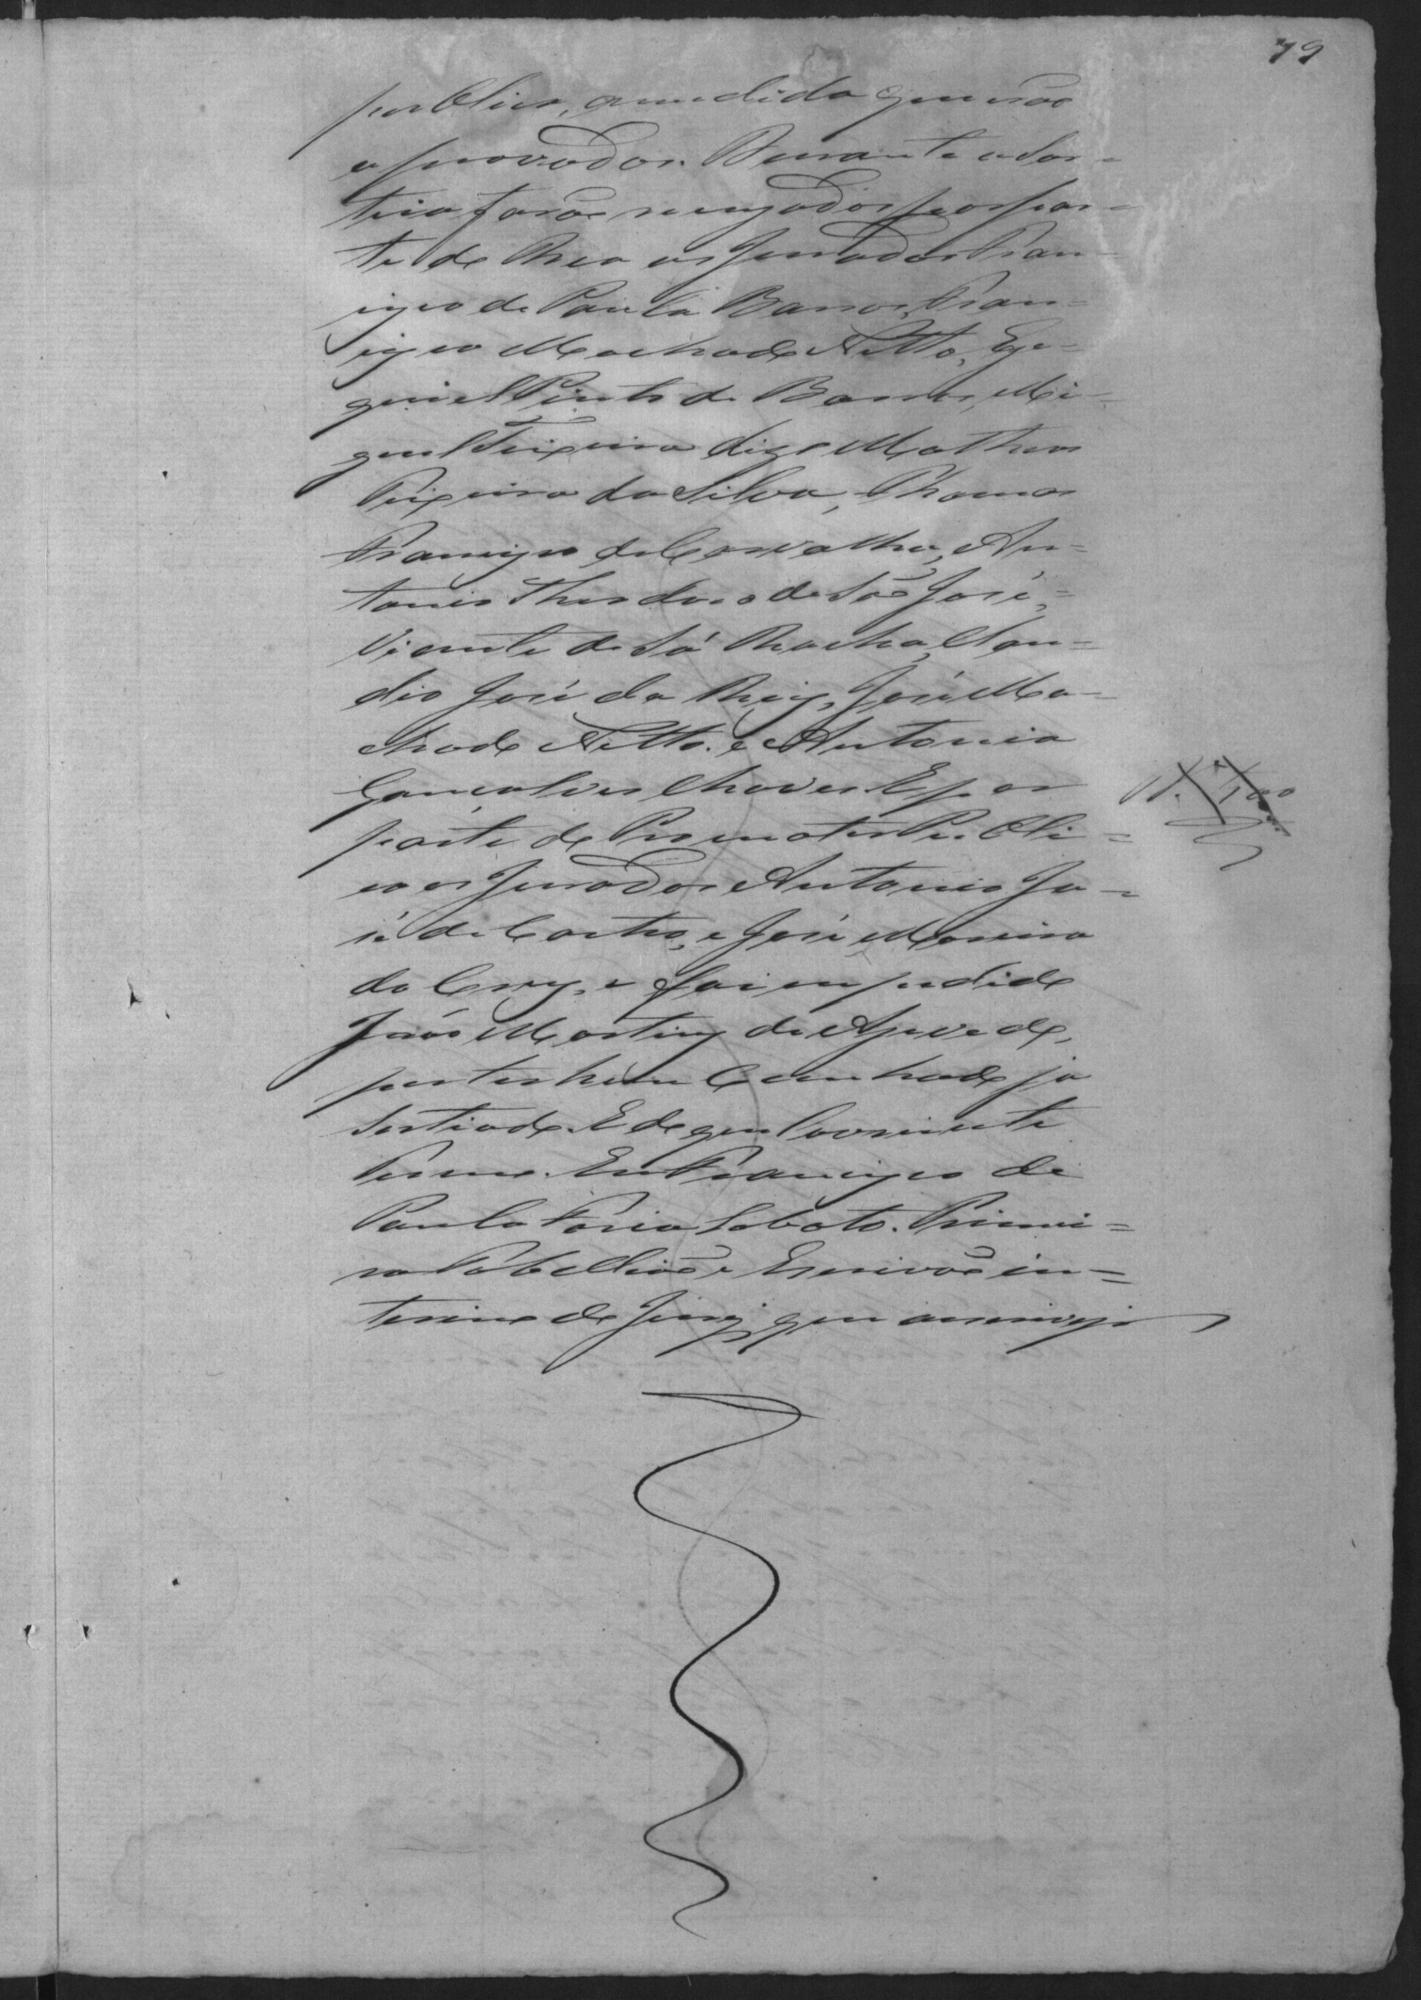 79
publico, a medida que erão
aprovados. Durante o sor=
teio forão recuzados por par=
te do Reo os Jurados Fran=
cisco de Paula Barros, Fran=
cisco Machado Netto, Eze=
quiel Pinto de Barros, Mi=
guel Teixeira digo Matheus
Teixeira da Silva, Thomas
Francisco de Carvalho, An=
tonio Theodoro de São José,
Vicente de Sá Rocha, Clau=
dio José da Reis, José Ma=
chado Netto, e Antonio
Gonçalves Chaves E por
parte do Promotor Publi=
co os Jurados Antonio Jo=
sé de Castro, e José Moreira
da Cruz, e foi impedido
João Martins de Azevedo,
por ter hum Cunhado ja
sortiado. E do que lavro este
termo. Eu Francisco de
Paula Faria Lobato. Primei=
ro Tabellião e Escrivão in=
terino do Jury que escrevy